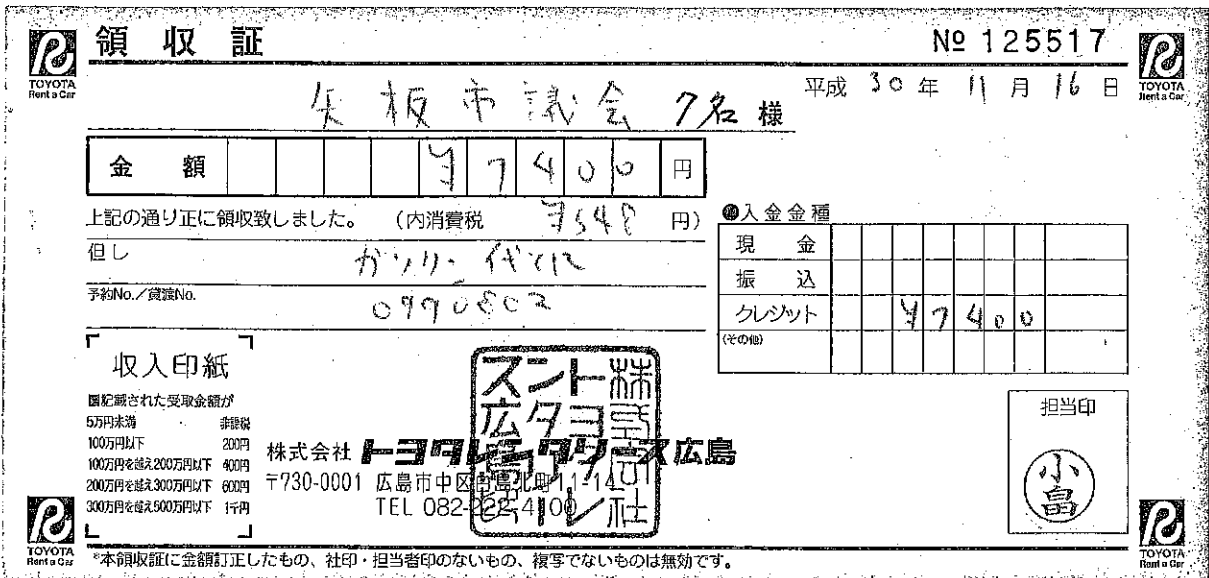 領収証
№ 125517
TOYOTA
Rent a Car
TOYOTA
Rent a Car
平成 30 年 11 月 16 日
矢板市議会 7名 様
金額 ¥7400 円
上記の通り正に領収致しました。 (内消費税 ¥548 円)
但し ガソリン代として
予約No./貸渡No. 0990802
入金金種
現金
振込
クレジット ¥7400
(その他)
収入印紙
記載された受取金額が
5万円未満 非課税
100万円以下 200円
100万円を越え200万円以下 400円
200万円を越え300万円以下 600円
300万円を越え500万円以下 1千円
株式会社 トヨタレンタリース広島
〒730-0001 広島市中区白島北町11-14
TEL 082-222-4100
担当印
小畠
TOYOTA
Rent a Car
TOYOTA
Rent a Car
*本領収証に金額訂正したもの、社印・担当者印のないもの、複写でないものは無効です。